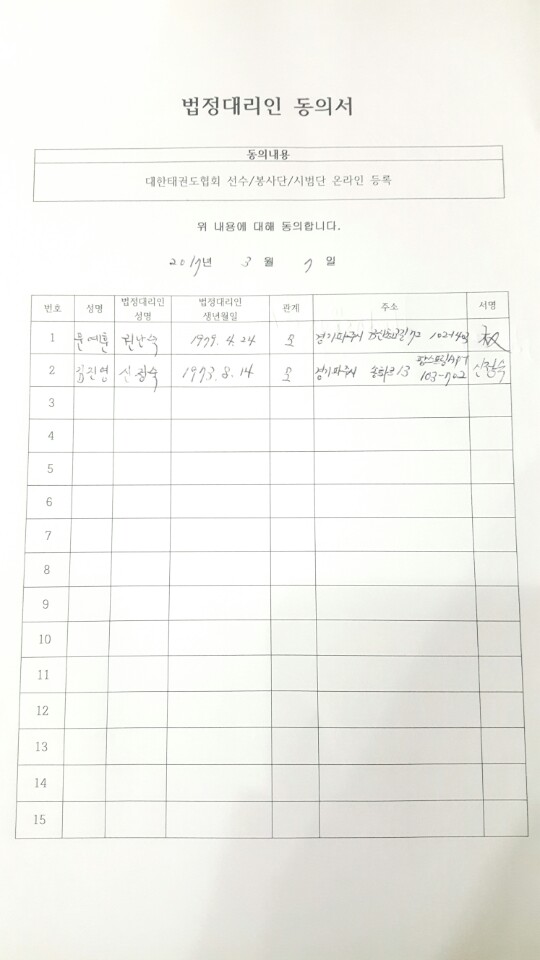 법정대리인 동의서
동의내용
대한태권도협회 선수/봉사단/시범단 온라인 등록
위 내용에 대해 동의합니다.
2017년 3 월 7 일
번호 성명 법정대리인 성명 법정대리인 생년월일 관계 주소 서명
1 문예훈 권난숙 1979. 4. 24 모 경기 파주시
2 김진영 신장숙 1973. 8. 14 모 경기 파주시 송화로 13 팜스프링APT 103-702 신장숙
3
4
5
6
7
8
9
10
11
12
13
14
15